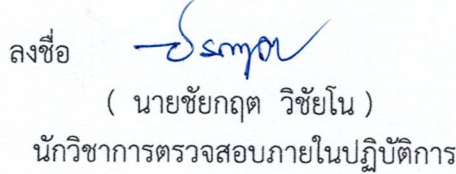 ลงชื่อ
( นายชัยกฤต วิชัยโน )
นักวิชาการตรวจสอบภายในปฏิบัติการ